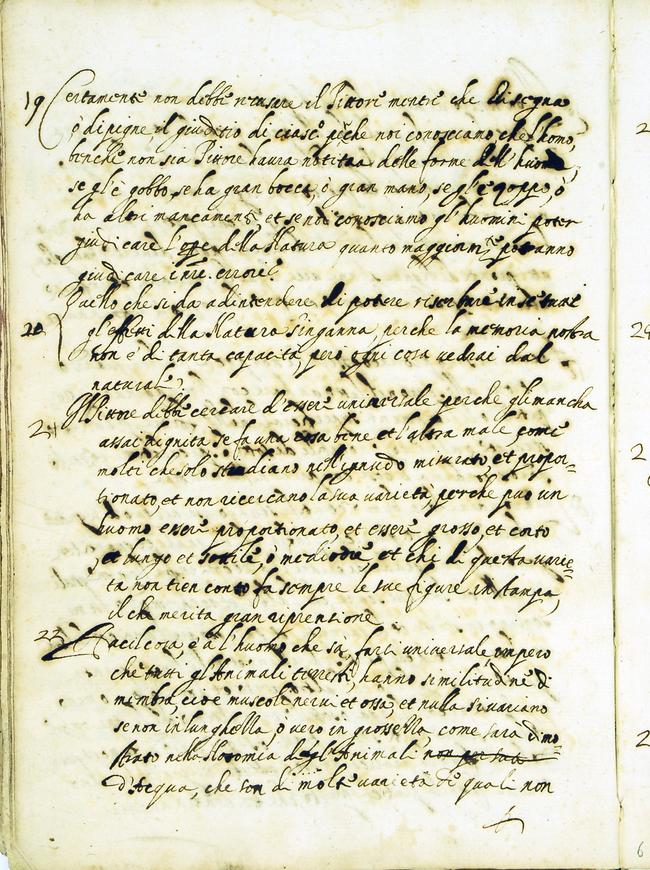 19 Certamente non debbe ricusare il Pittore mentre che disegna
ò dipigne, il giuditio di ciasc.º pche noi conosciamo che l'homo,
benche non sia Pittore haura notitia delle forme dell'huomo,
se gl'è gobbo, se ha gran bocca, ò gran mano, se gl'è zoppo, ò
ha altri mancamenti, et se noi conosciamo gl'huomini poter
giudicare l'opre della Natura quanto maggiorm.te potranno
giudicare i nrĩ errori.
20 Quello che si da ad intendere di potere riserbare in se tutti
gl'effetti della Natura s'inganna, perche la memoria nostra
non è di tanta capacità, però ogni cosa vedrai dal
naturale.
21 Il Pittore debbe cercare d'essere universale perche gli manca
assai dignita se fa una cosa bene et l'altra male come
molti che solo studiano nell'ignudo misurato, et propor-
tionato, et non ricercano la sua varietà, perche può un
huomo essere proportionato, et essere grosso, et corto
et lungo et sottile, ò mediocre, et chi di questa varie-
ta non tien conto fa sempre le sue figure in stampa,
il che merita gran riprensione
22 Facil cosa, è à l'huomo che sa, farsi universale, impero
che tutti gl'Animali terrestri, hanno similitudine di
membra, cioè muscoli nervi et ossa, et nulla si variano
se non in lunghezza, ò vero in grossezza, come sarà dimo-
strato nella Notomia degl'Animali
d'Acqua, che son di molte varietà de quali non